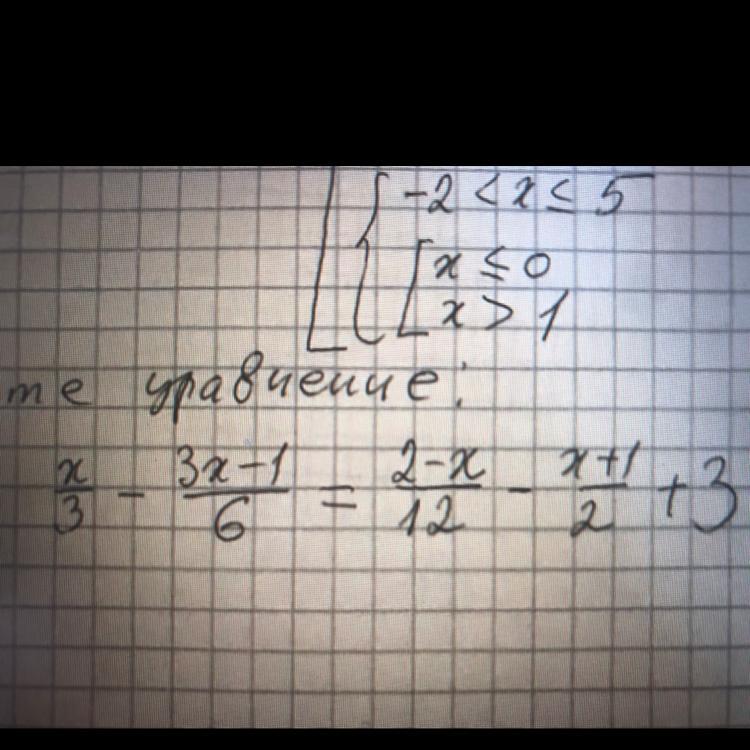 -2 < x ≤ 5
x ≤ 0
x > 1
те уравнение:
x/3 - (3x-1)/6 = (2-x)/12 - (x+1)/2 + 3